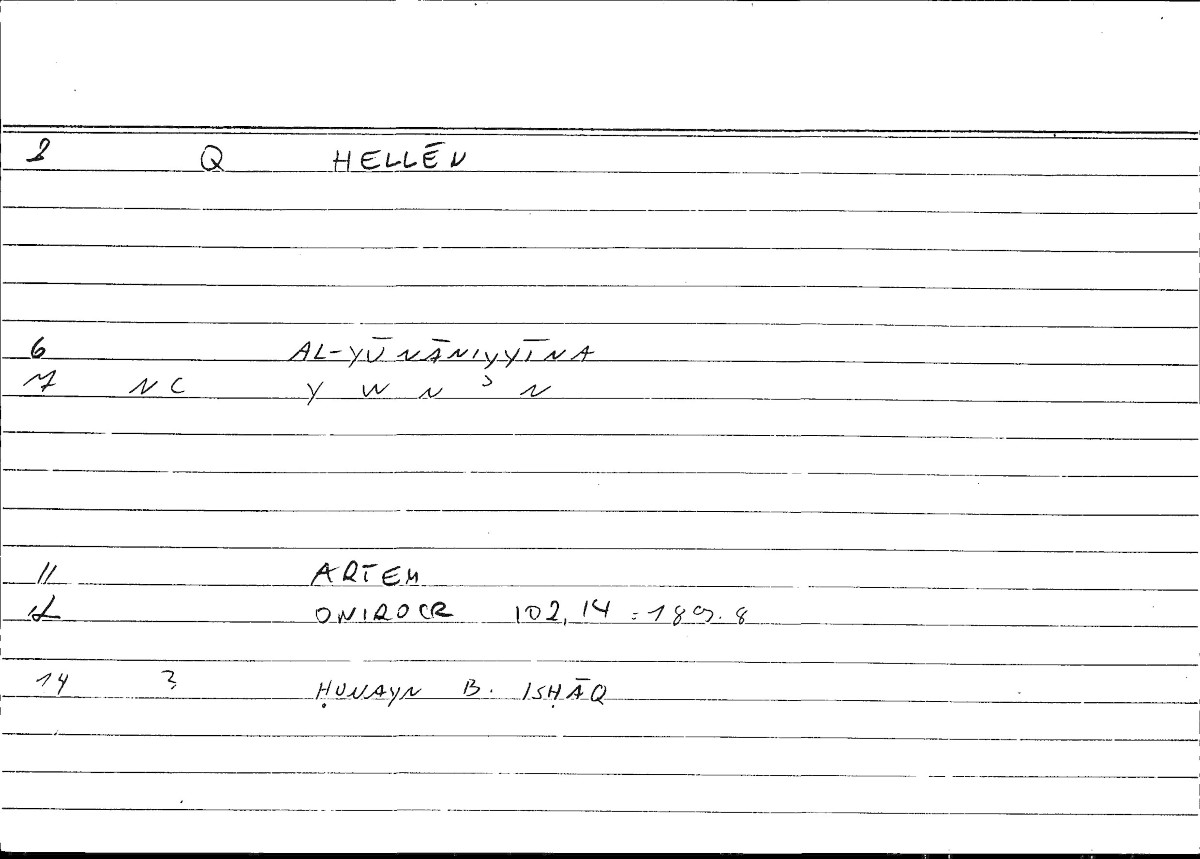 2 Q HELLĒN
6 AL-YŪNĀNIYYĪNA
7 NC Y W N ʾ N
11 ARTEM
12 ONIROCR 102,14 : 189.8
14 ? ḤUNAYN B. ISḤĀQ